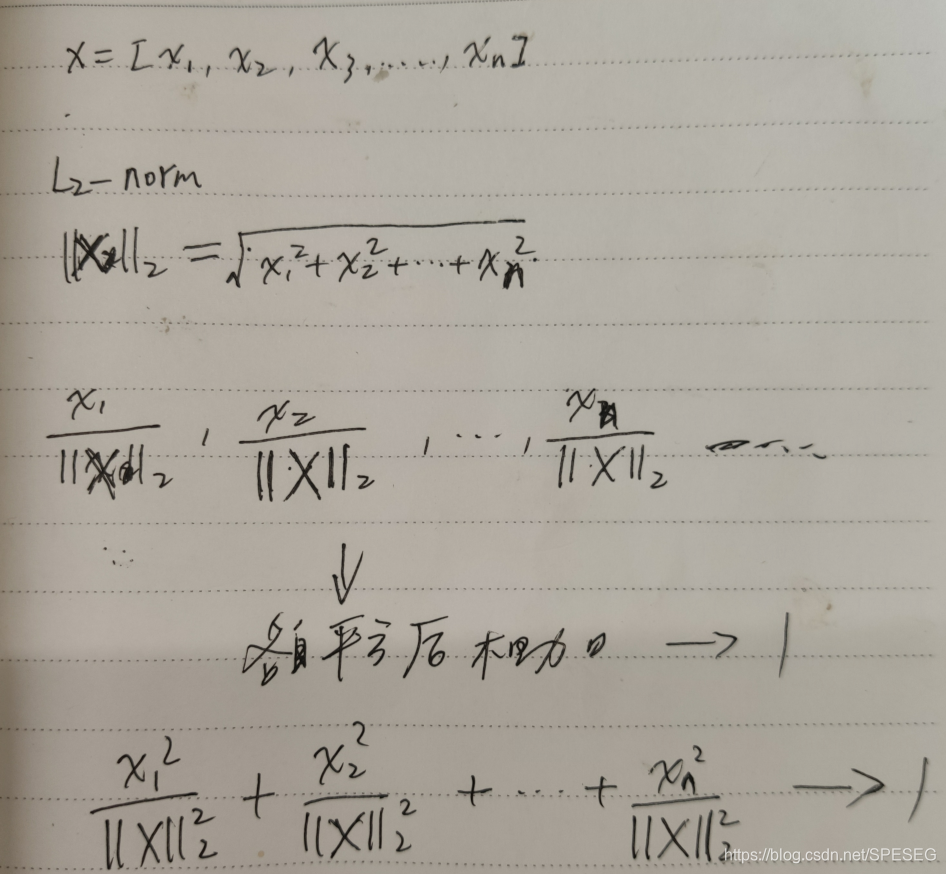 x = [x₁, x₂, x₃, ..., xₙ]
L₂-norm
||X||₂ = √(x₁² + x₂² + ... + xₙ²)
x₁/||X||₂ , x₂/||X||₂ , ... , xₙ/||X||₂
↓
各自平方后相加 → 1
x₁²/||X||₂² + x₂²/||X||₂² + ... + xₙ²/||X||₂² → 1
https://blog.csdn.net/SPESEG